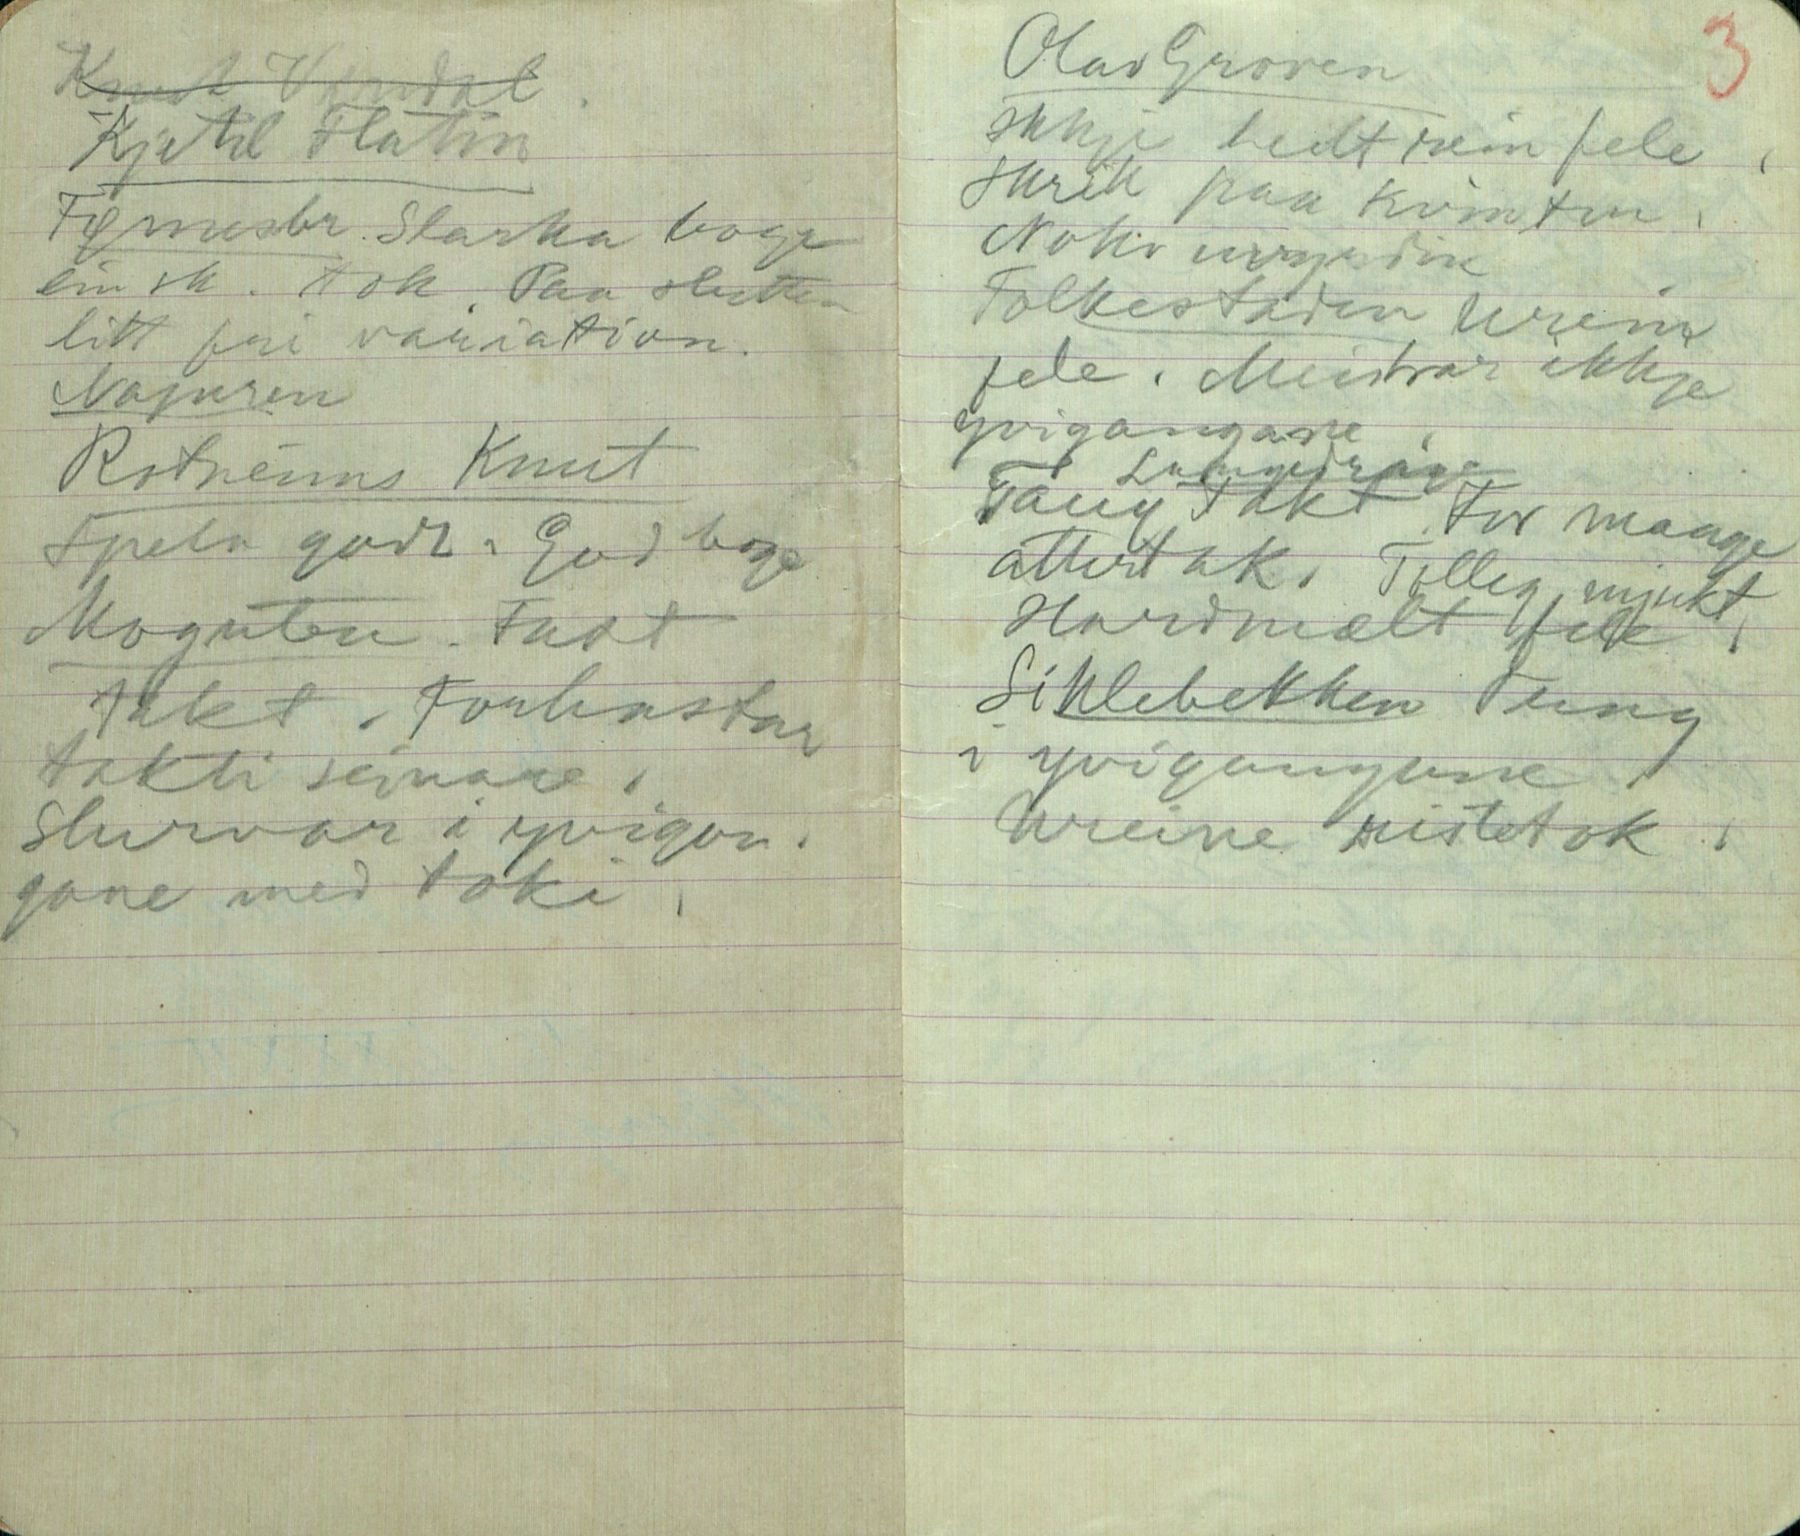 Knut Verdal.
Kjetil Flatin
Fyrnesbr. Slarka boge
ein sk. tok. Paa slutten
litt fri variation.
Nordfjoren
Rotneims Knut
Spela godt. God boge
Moguten. Fast
takt. Forhastar
takti seinare.
Slurvar i yvigan.
gane med toki.
3
Olav Groven
Ikkje heilt rein fele.
Skrik paa kvinten.
Noko urygudin
Folkestaden Urein
fele. Meistrar ikkje
yvigangane.
Langedrag
Taug Takt. For mange
attertak. Tilleg mjukt
Hardmælt fele.
Siklebekken Tung
i yvigangane.
Ureine sistetok.